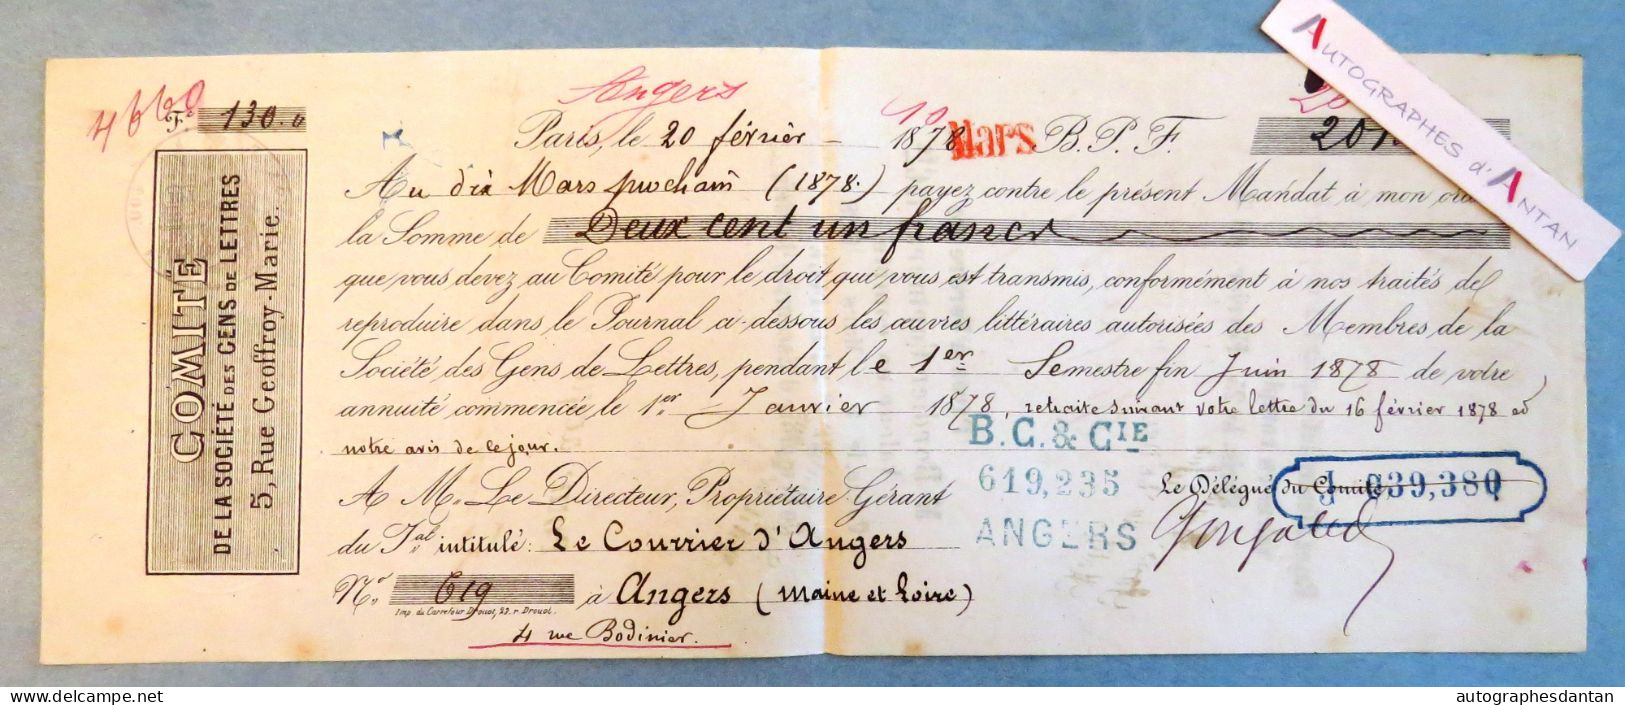 AUTOGRAPHES d'ANTAN
4660
Fo 130.
Angers
10
20
Paris, le 20 février 1878 Mars B. P. F. 201
Au dix Mars prochain (1878.) payez contre le présent Mandat à mon
la Somme de Deux cent un francs
que vous devez au Comité pour le droit qui vous est transmis, conformément à nos traités de
reproduire dans le Journal ci-dessous les œuvres littéraires autorisées des Membres de la
Société des Gens de Lettres, pendant le 1er Semestre fin Juin 1878 de votre
annuité commencée le 1er Janvier 1878, retraite suivant votre lettre du 16 février 1878 et
notre avis de ce jour.
B. C. & CIE
A Mr. Le Directeur, Propriétaire Gérant 619,235 Le Délégué du Comité, 839,380
du Jal intitulé: Le Courrier d'Angers ANGERS
No. 619 à Angers (Maine et Loire)
Imp. du Carrefour Drouot, 22. r. Drouot.
4 rue Bodinier.
COMITÉ
DE LA SOCIÉTÉ DES GENS DE LETTRES
5, Rue Geoffroy-Marie.
delcampe.net
autographesdantan